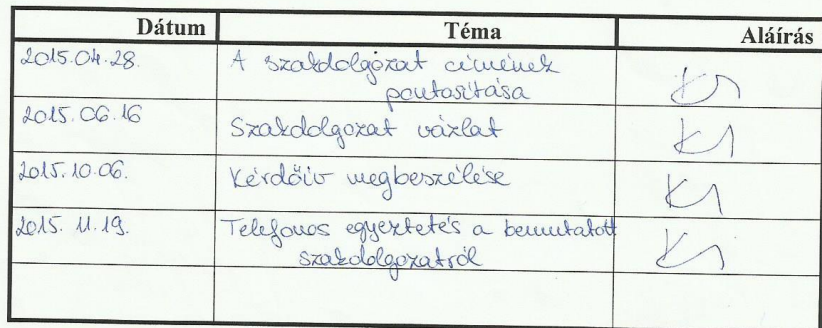 Dátum Téma Aláírás
2015.04.28. A szakdolgozat címének
pontosítása
2015.06.16 Szakdolgozat vázlat
2015.10.06. Kérdőív megbeszélése
2015. 11.19. Telefonos egyeztetés a bemutatott
szakdolgozatról